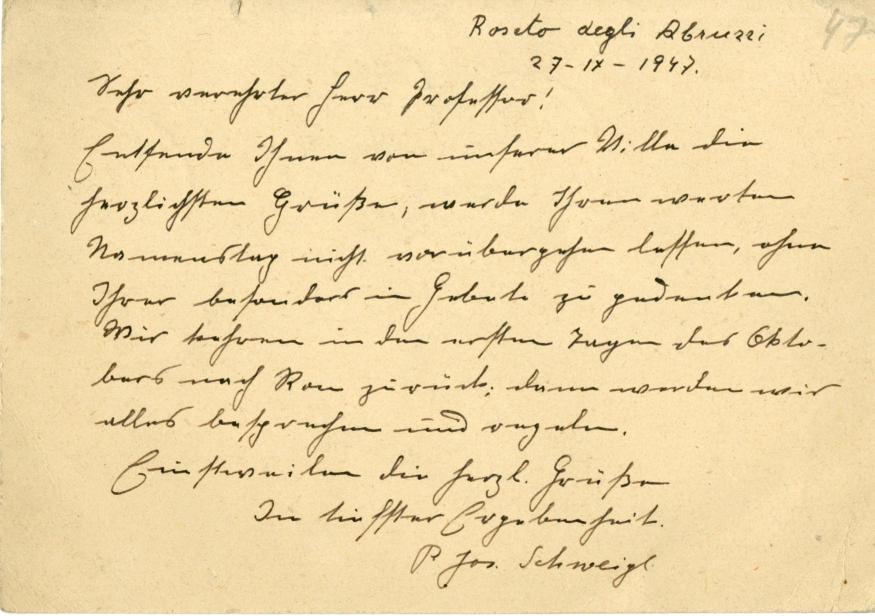 47
Roseto degli Abruzzi
27-IX-1947.
Sehr verehrter Herr Professor!
Entsende Ihnen von unserer Villa die
herzlichsten Grüße, werde Ihren werten
Namenstag nicht vorübergehen lassen, ohne
Ihrer besonders im Gebete zu gedenken.
Wir kehren in den ersten Tagen des Okto-
bers nach Rom zurück; dann werden wir
alles besprechen und regeln.
Einstweilen die herzl. Grüße
In tiefster Ergebenheit.
P. Jos. Schweigl